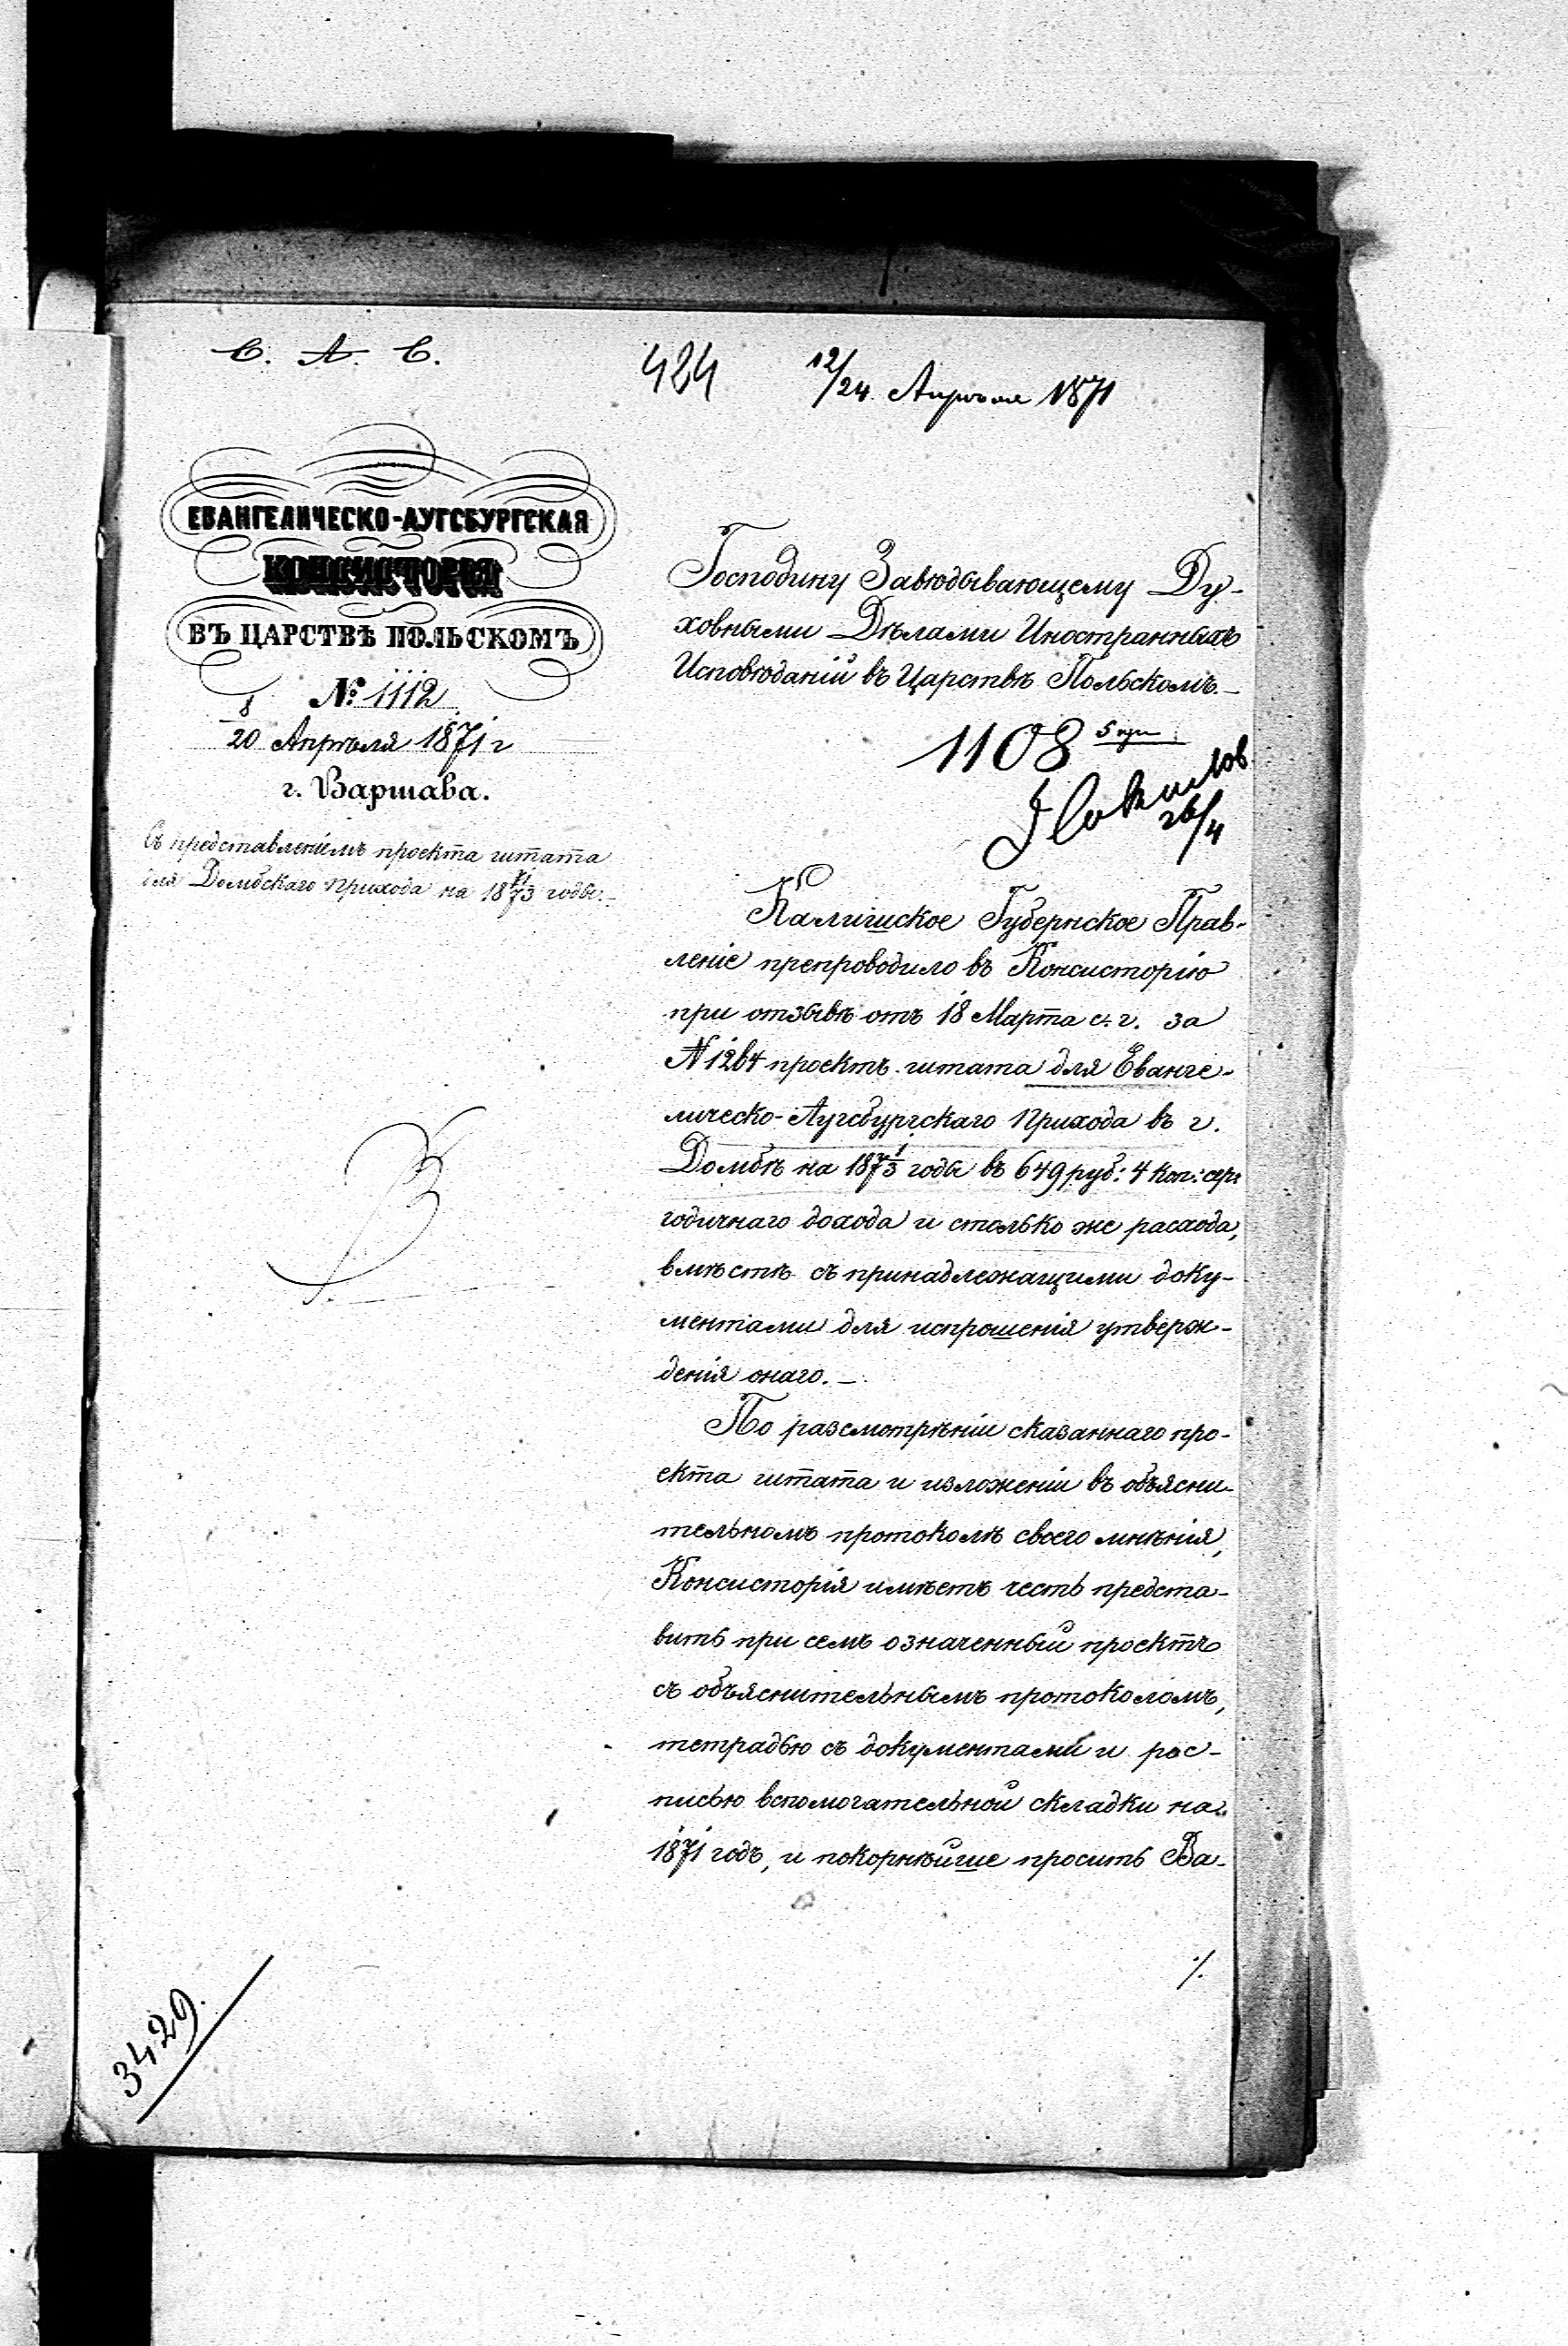 С. А. С.
424
12/24 Апрѣля 1871
ЕВАНГЕЛИЧЕСКО-АУГСБУРГСКАЯ
КОНСИСТОРІЯ
ВЪ ЦАРСТВѢ ПОЛЬСКОМЪ
№ 1112
8/20 Апрѣля 1871 г
г. Варшава.
Съ представленіемъ проекта штата
для Домбскаго прихода на 1871/73 годы.
Господину Завѣдывающему Ду-
ховными Дѣлами Иностранныхъ
Исповѣданій въ Царствѣ Польскомъ.
1108 5
26/4
Калишское Губернское Прав-
леніе препроводило въ Консисторію
при отзывѣ отъ 18 Марта с. г. за
N 1264 проектъ штата для Еванге-
лическо-Аугсбургскаго Прихода въ г.
Домбѣ на 1871/73 годы въ 649 руб: 4 коп: сер:
годичнаго дохода и столько же расхода,
вмѣстѣ съ принадлежащими доку-
ментами для испрошенія утверж-
денія онаго.
По разсмотрѣніи сказаннаго про-
екта штата и изложеніи въ объясни-
тельномъ протоколѣ своего мнѣнія,
Консисторія имѣетъ честь предста-
вить при семъ означенный проектъ
съ объяснительнымъ протоколомъ,
тетрадью съ документами и рос-
писью вспомогательной складки на
1871 годъ, и покорнѣйше просить Ва-
./.
3429.